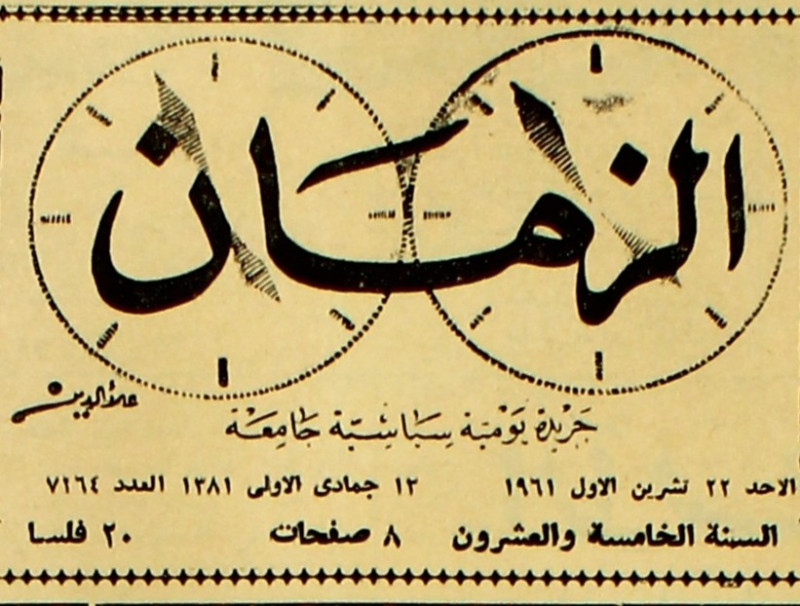 الزمان
علاء الدين
جريدة يومية سياسية جامعة
الاحد ٢٢ تشرين الاول ١٩٦١ ١٢ جمادى الاولى ١٣٨١ العدد ٧٢٦٤
السنة الخامسة والعشرون ٨ صفحات ٢٠ فلسا